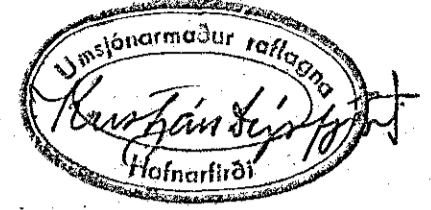 Umsjónarmaður raflagna
Kristján
Hafnarfirði